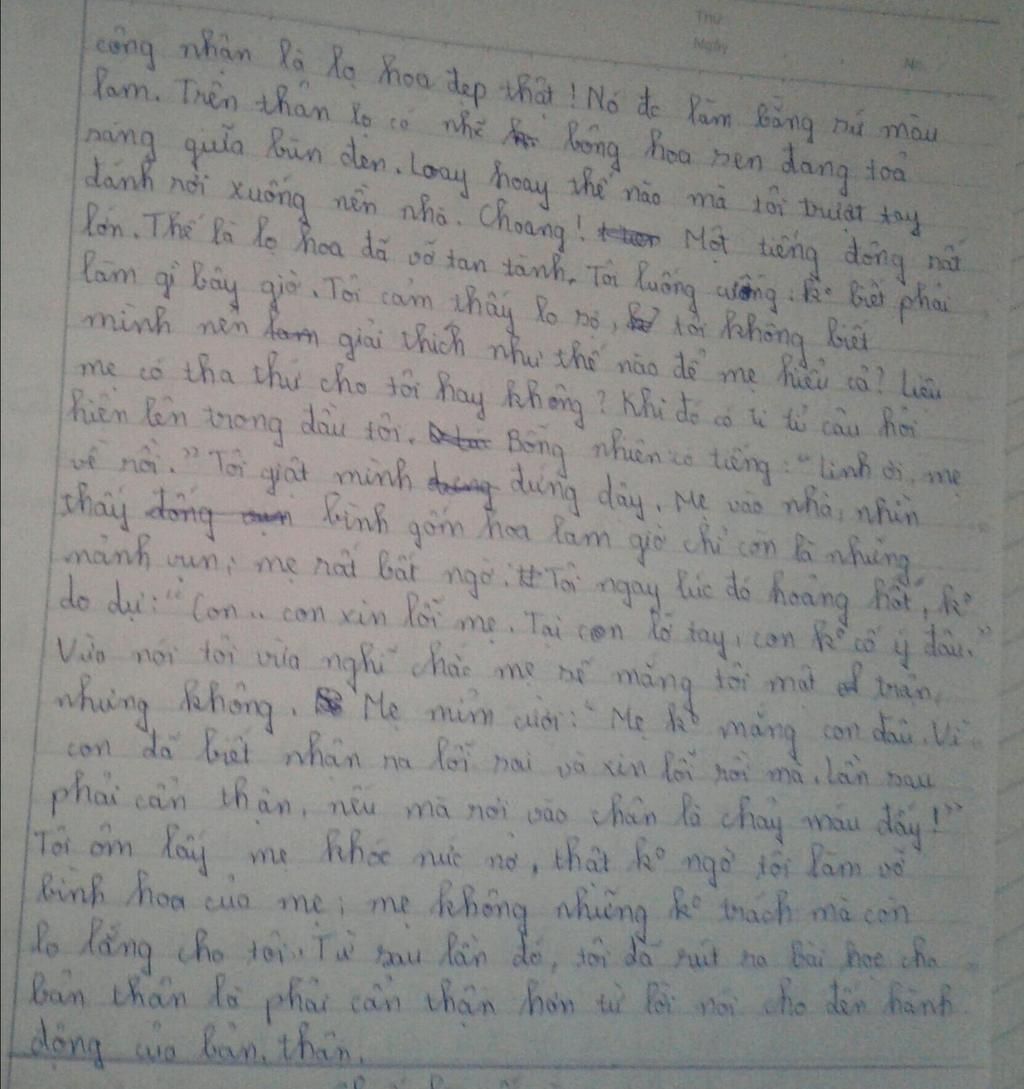 Thứ
Ngày
No.
công nhận là lọ hoa đẹp thật! Nó đc làm bằng sứ màu
lam. Trên thân lọ có nhẽ bông hoa sen đang toả
sáng giữa bùn đen. Loay hoay thế nào mà tôi trượt tay
đánh rơi xuống nền nhà. Choang! Một tiếng động rất
lớn. Thế là lọ hoa đã vỡ tan tành. Tôi luống cuống. ko biết phải
làm gì bây giờ. Tôi cảm thấy lo sợ, tôi không biết
mình nên giải thích như thế nào để mẹ hiểu cả? Liệu
mẹ có tha thứ cho tôi hay không? Khi đó có li ti câu hỏi
hiện lên trong đầu tôi. Bỗng nhiên có tiếng: "Linh ơi, mẹ
về rồi." Tôi giật mình đứng dậy. Mẹ vào nhà, nhìn
thấy bình gốm hoa lam giờ chỉ còn là những
mảnh vụn, mẹ rất bất ngờ. Tôi ngay lúc đó hoảng hốt, ko
do dự: "Con.. con xin lỗi mẹ. Tại con lỡ tay, con ko cố ý đâu."
Vừa nói tôi vừa nghĩ chắc mẹ sẽ mắng tôi một trận,
nhưng không. Mẹ mỉm cười: "Mẹ ko mắng con đâu. Vì
con đã biết nhận ra lỗi sai và xin lỗi rồi mà. Lần sau
phải cẩn thận, nếu mà rơi vào chân là chảy máu đấy!"
Tôi ôm lấy mẹ khóc nức nở, thật ko ngờ tôi làm vỡ
bình hoa của mẹ; mẹ không những ko trách mà còn
lo lắng cho tôi. Từ sau lần đó, tôi đã rút ra bài học cho
bản thân là phải cẩn thận hơn từ lời nói cho đến hành
động của bản thân.